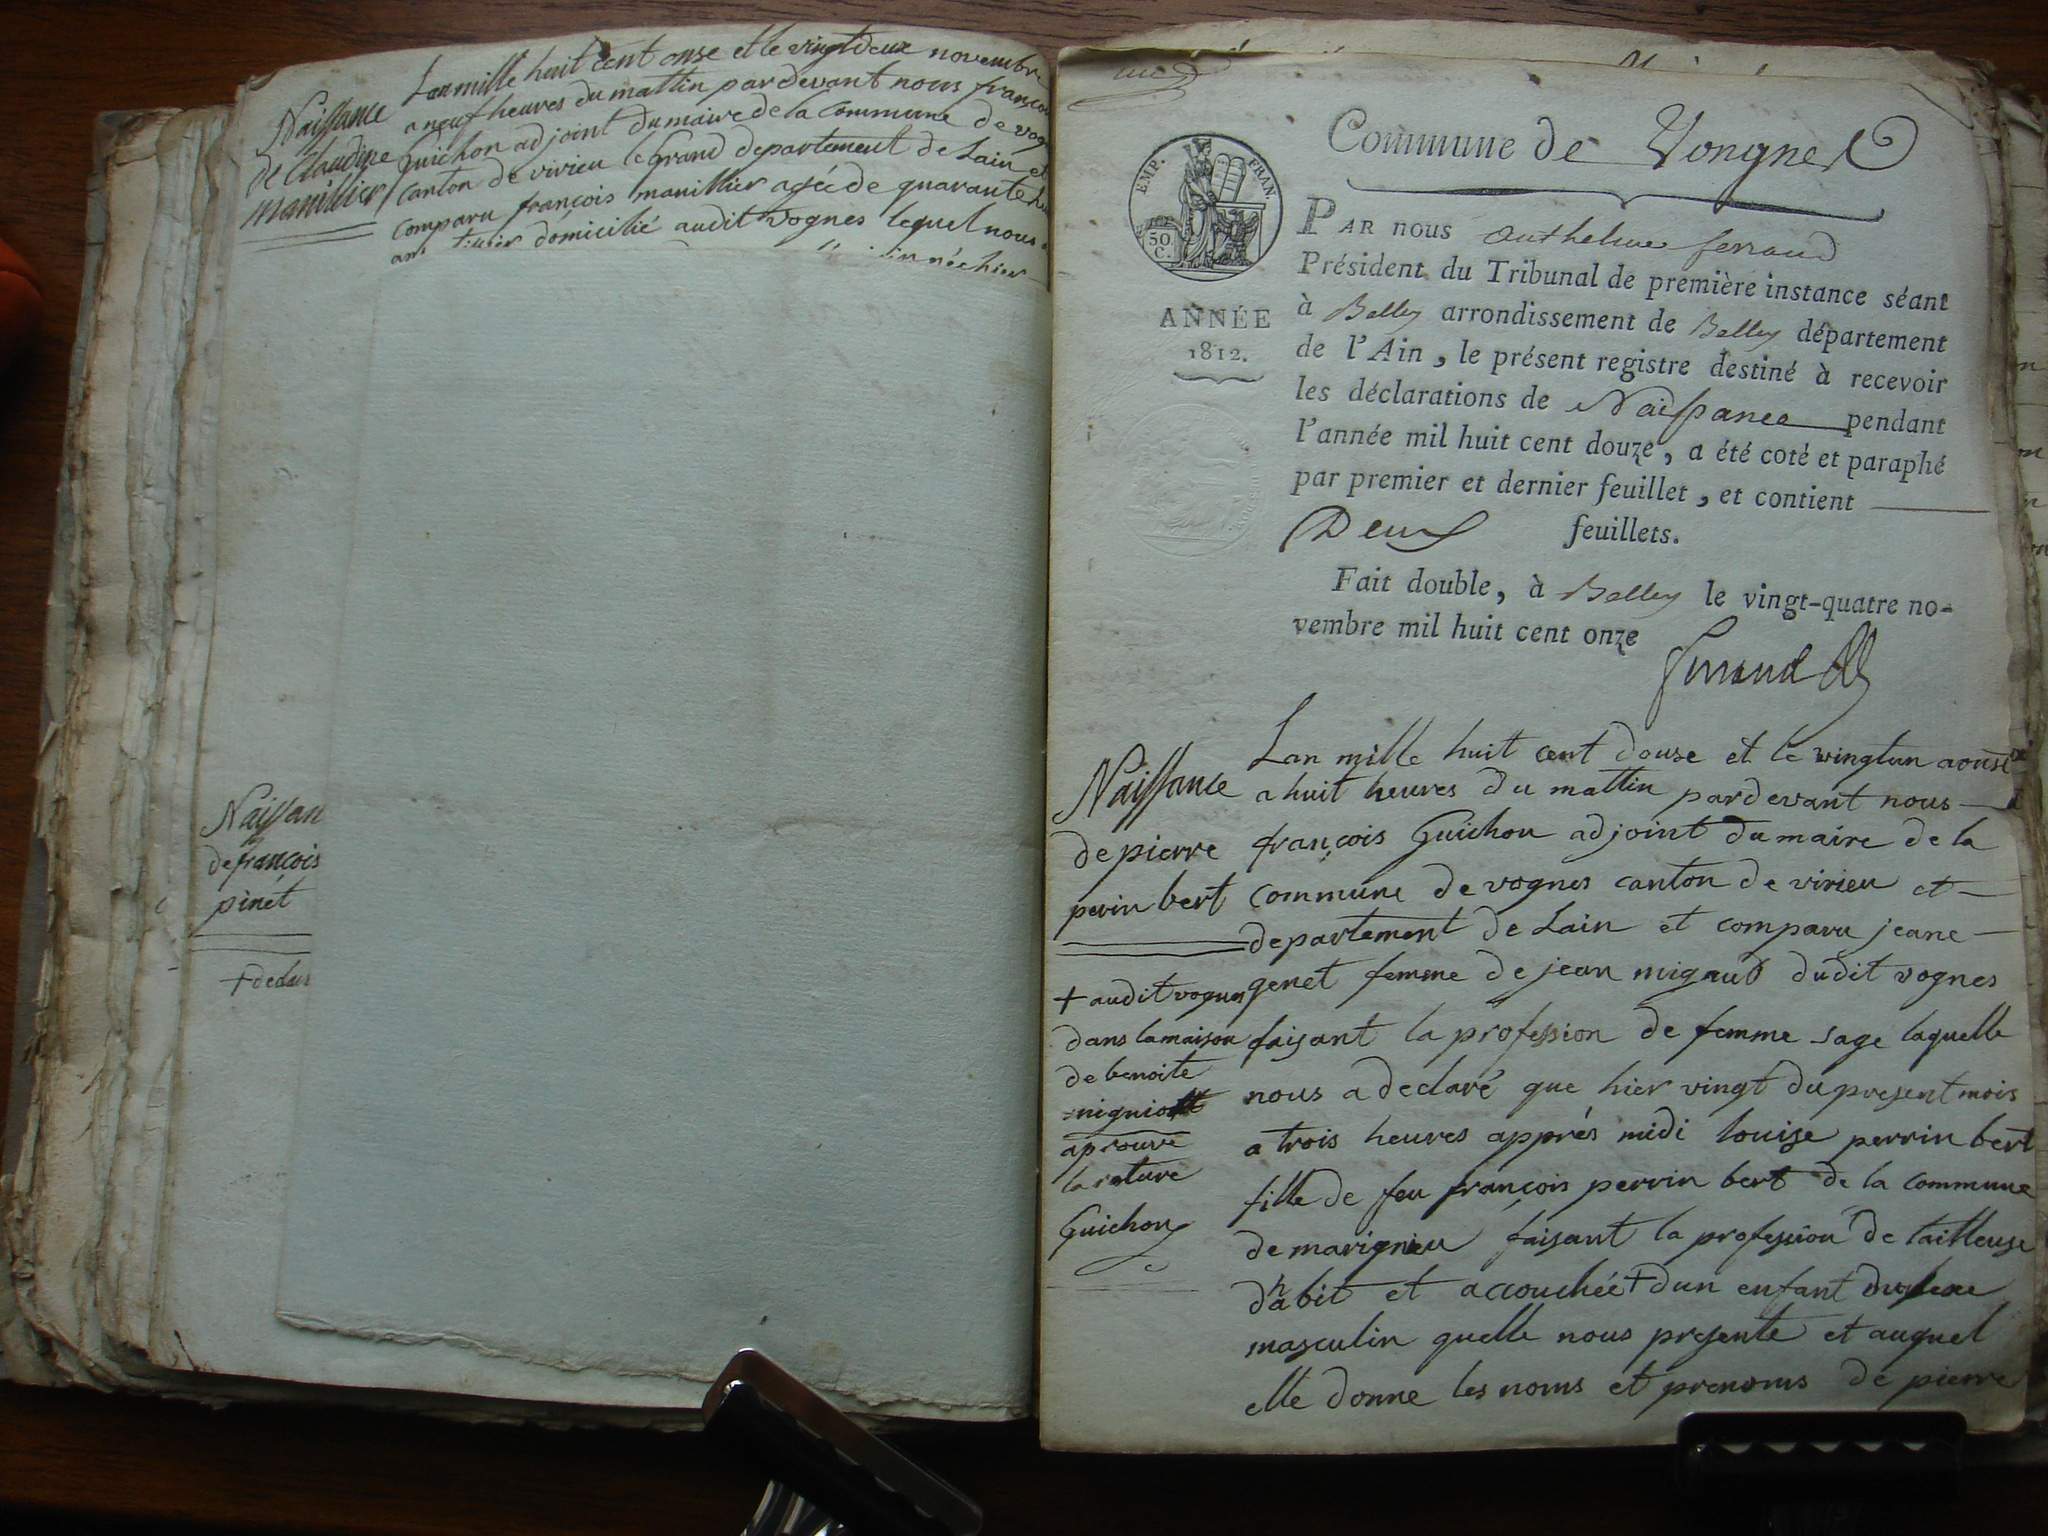 Lan mille huit cent onse et le vingt deux novembre
a neuf heures du mattin pardevant nous françois
Guichon adjoint du maire de la commune de vog
canton de virieu le Grand departement de Lain et
comparu françois manillier agée de quarante
ans domicilié audit vognes lequel nous
hier
Naissance
de Claudine
manillier
Naissan
de françois
pinet
+ de
Commune de Vongnes
EMP. FRAN.
50 C.
ANNÉE
1812.
PAR nous Anthelme ferrand
Président du Tribunal de première instance séant
à Belley arrondissement de Belley département
de l'Ain, le présent registre destiné à recevoir
les déclarations de Naissance pendant
l'année mil huit cent douze, a été coté et paraphé
par premier et dernier feuillet, et contient
Deux feuillets.
Fait double, à Belley le vingt-quatre no-
vembre mil huit cent onze
Ferrand
Naissance
de pierre
perin bert
Lan mille huit cent douse et le vingtun aoust
a huit heures du mattin pardevant nous
françois Guichon adjoint du maire de la
commune de vognes canton de virieu et
departement de Lain et comparu jeane
genet femme de jean migaud dudit vognes
faisant la profession de femme sage laquelle
nous a declaré que hier vingt du present mois
a trois heures apprés midi louise perrin bert
fille de feu françois perrin bert de la commune
de marignieu faisant la profession de tailleuse
dhabit et accouchée + dun enfant du sexe
masculin quelle nous presente et auquel
elle donne les noms et prenoms de pierre
+ audit vognes
dans la maison
de benoite
aprouvé
la rature
Guichon